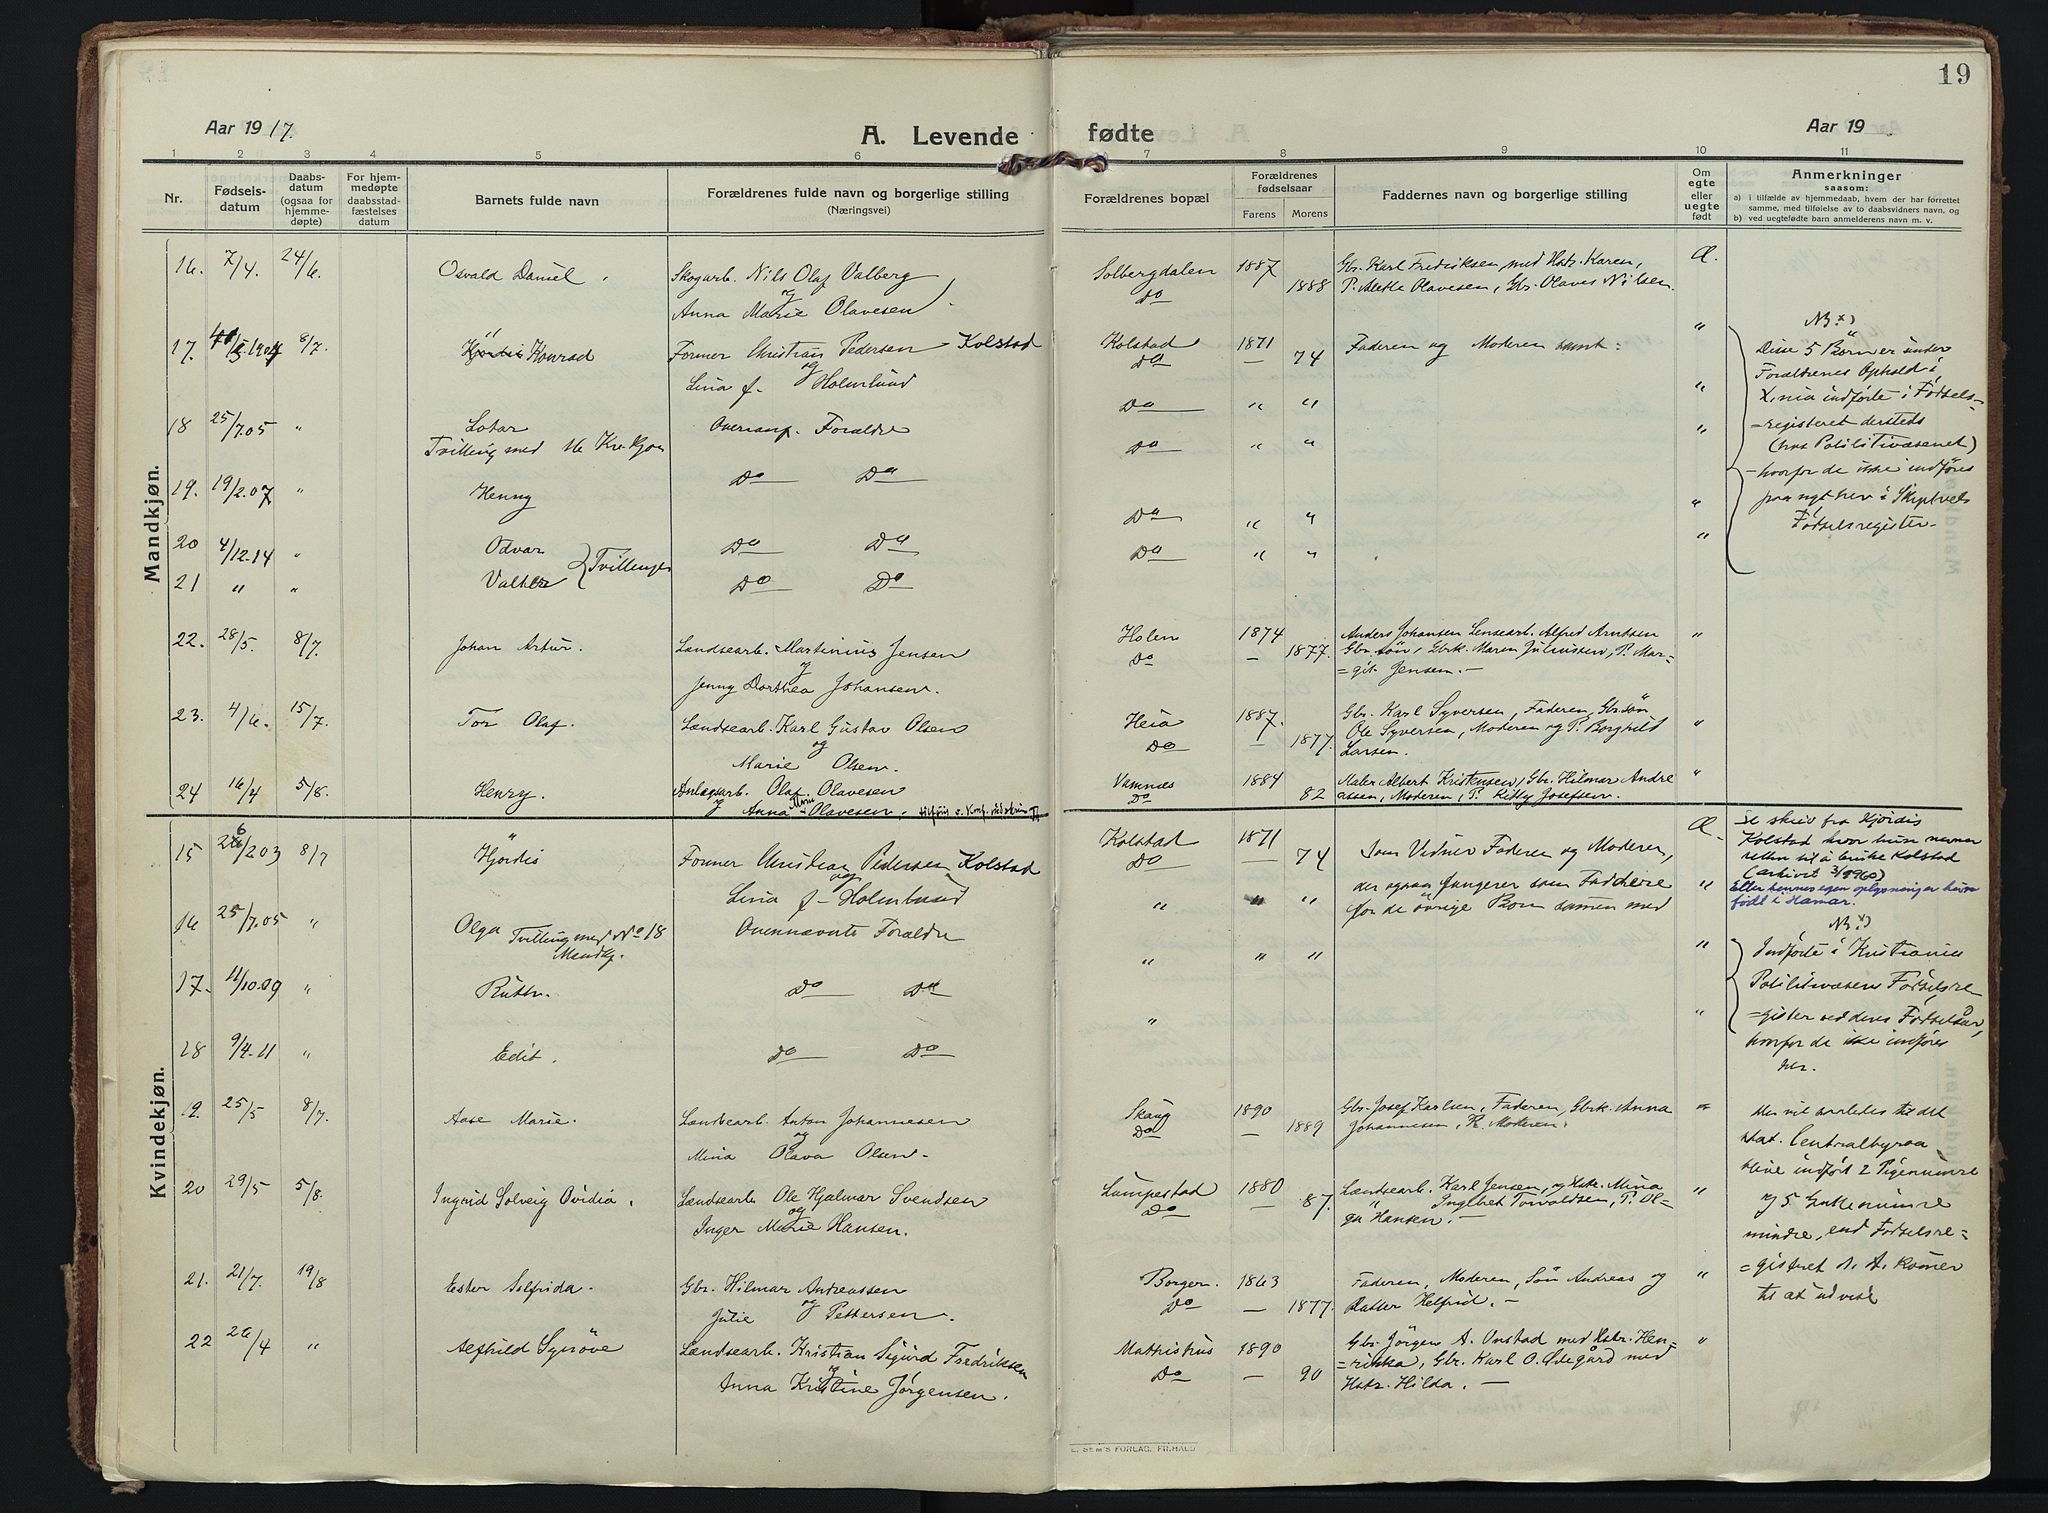 19
Aar 1917.
A. Levende fødte
Aar 19
1 2 3 4 5 6 7 8 9 10 11
Nr.
Fødsels-
datum
Daabs-
datum
(ogsaa for
hjemme-
døpte)
For hjem-
medøpte
daabsstad-
fæstelses
datum
Barnets fulde navn
Forældrenes fulde navn og borgerlige stilling
(Næringsvei)
Forældrenes bopæl
Forældrenes
fødselsaar
Farens Morens
Faddernes navn og borgerlige stilling
Om
egte
eller
uegte
født
Anmerkninger
saasom:
a) i tilfælde av hjemmedaab, hvem der har forrettet
samme, med tilføielse av to daabsvidners navn, og
b) ved uegtefødte barn anmelderens navn m. v.
Mandkjøn.
16. 7/4. 24/6. Osvald Daniel. Skogarb. Nils Olaf Valberg Solbergdalen 1887 Gbr. Karl Fredriksen, med Hstr. Karen, Æ.
og Do 1888 P. Alette Olavesen, Gbr. Olaves Nilsen.
Anna Marie Olavesen.
17. 8/7. Konrad Former Christian Pedersen Kolstad Kolstad 1871 Faderen og Moderen samt: "
og Do — 74
Lina f. Holmlund
18 25/7.05 " Lotar Overnanf. Forældre Do " " "
Tvilling med
19. 19/2.07 " Henny Do Do Do " " "
20 4/12.14 " Odvar Do Do Do " " "
Tvillinger
21 " " Valter Do Do Do " " "
NB x)
Disse 5 Børn er under
Forældrenes Ophold i
X.nia indførte i Fødsels-
=registeret dersteds
(hos Politivæsenet)
hvorfor de ikke indføres
paa nyt her i Skiptvets
Fødselsregister.
22. 28/5. 8/7. Johan Artur. Lændsearb. Martinius Jensen Holen 1874 Anders Johansen Lensearb. Alfred Arntssen "
og Do — 1877. Gbr. søn, Gbrk. Maren Juliussen, P. Mar-
Jenny Dorthea Johansen. =git Jensen. —
23. 4/6. 15/7. Tor Olaf. Lændsearb. Karl Gustav Olsen Heia 1887. Gbr. Karl Syversen, Faderen, Gbr.søn "
og Do — 1877. Ole Syversen, Moderen og P. Borghild
Marie Olsen. Larsen.
24 16/4 5/8. Henry. Anlægsarb. Olaf Olavesen Vamnæs 1884 Maler Albert Kristensen, Gbr. Hilmar Andre "
og Anna Olavesen. Do 82 assen, Moderen, P. Kitty Josefsen.
Kvindekjøn.
15 8/7 Hjördis Former Christian Pedersen Kolstad Kolstad 1871 Som Vidner Faderen og Moderen, Æ.
og Do — 74 der ogsaa fungerer som Faddere
Lina f. Holmlund for de øvrige Børn sammen med
Se skriv fra Hjørdis
Kolstad hvor hun nevner
retten til å bruke Kolstad
(arkivet 3/1960)
Etter hennes egen oplysning er hun
født i Hamar.
16 25/7.05 " Olga Tvilling med No 18 Overnævnte Forældre " " " "
Mandkj.
17. 11/10.09 " Ruth. Do Do " " " "
18 9/4.11 " Edit. Do Do " "
NB x)
Indførte i Kristiania
Politivæsen Fødselsre
=gister ved deres Fødselsaar,
hvorfor de ikke indføres
her.
19. 25/5 8/7. Aase Marie. Lændsearb. Anton Johannesen Skaug 1890 Gbr. Josef Karlsen, Faderen, Gbrk. Anna "
og Do — 1889 Johannesen, Moderen.
Mina Olava Olsen.
20 29/5 5/8. Ingrid Solveig Ovidia. Lændsearb. Ole Hjalmar Svendsen Lumpestad 1880 Lændsearb. Karl Jensen, og Hstr. Mina "
og Do 87. Ingebret Torvaldsen, P. Ol-
Inger Marie Hansen. ga Hansen. —
21. 21/7. 19/8 Ester Solfrida. Gbr. Hilmar Andreassen Borger. 1863 Faderen, Moderen, Søn Andreas og "
Julie og Pettersen. Do — 1877. Datter Helfrid. —
22 26/4 " Alfhild Synøve Lændsearb. Kristian Sigurd Fredriksen 1890 Gbr. Jörgen A. Onstad med Hstr. Hen- "
og Do — 90 =rikka, Gbr. Karl O. Ødegård med
Anna Kristine Jørgensen. Hstr. Hilda. —
Der vil saaledes til det
stat. Centralbyraa
blive indført 2 Pigenumre
og 5 Guttenumre
mindre, end Fødselsre=
=gisteret d. A. kommer
til at udvise
E. SEM'S FORLAG, FR.HALD